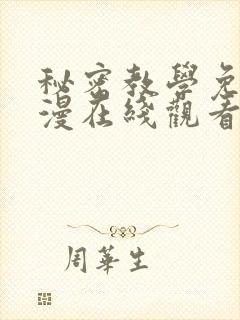 秘密教學免
漫在綫觀看
周華生